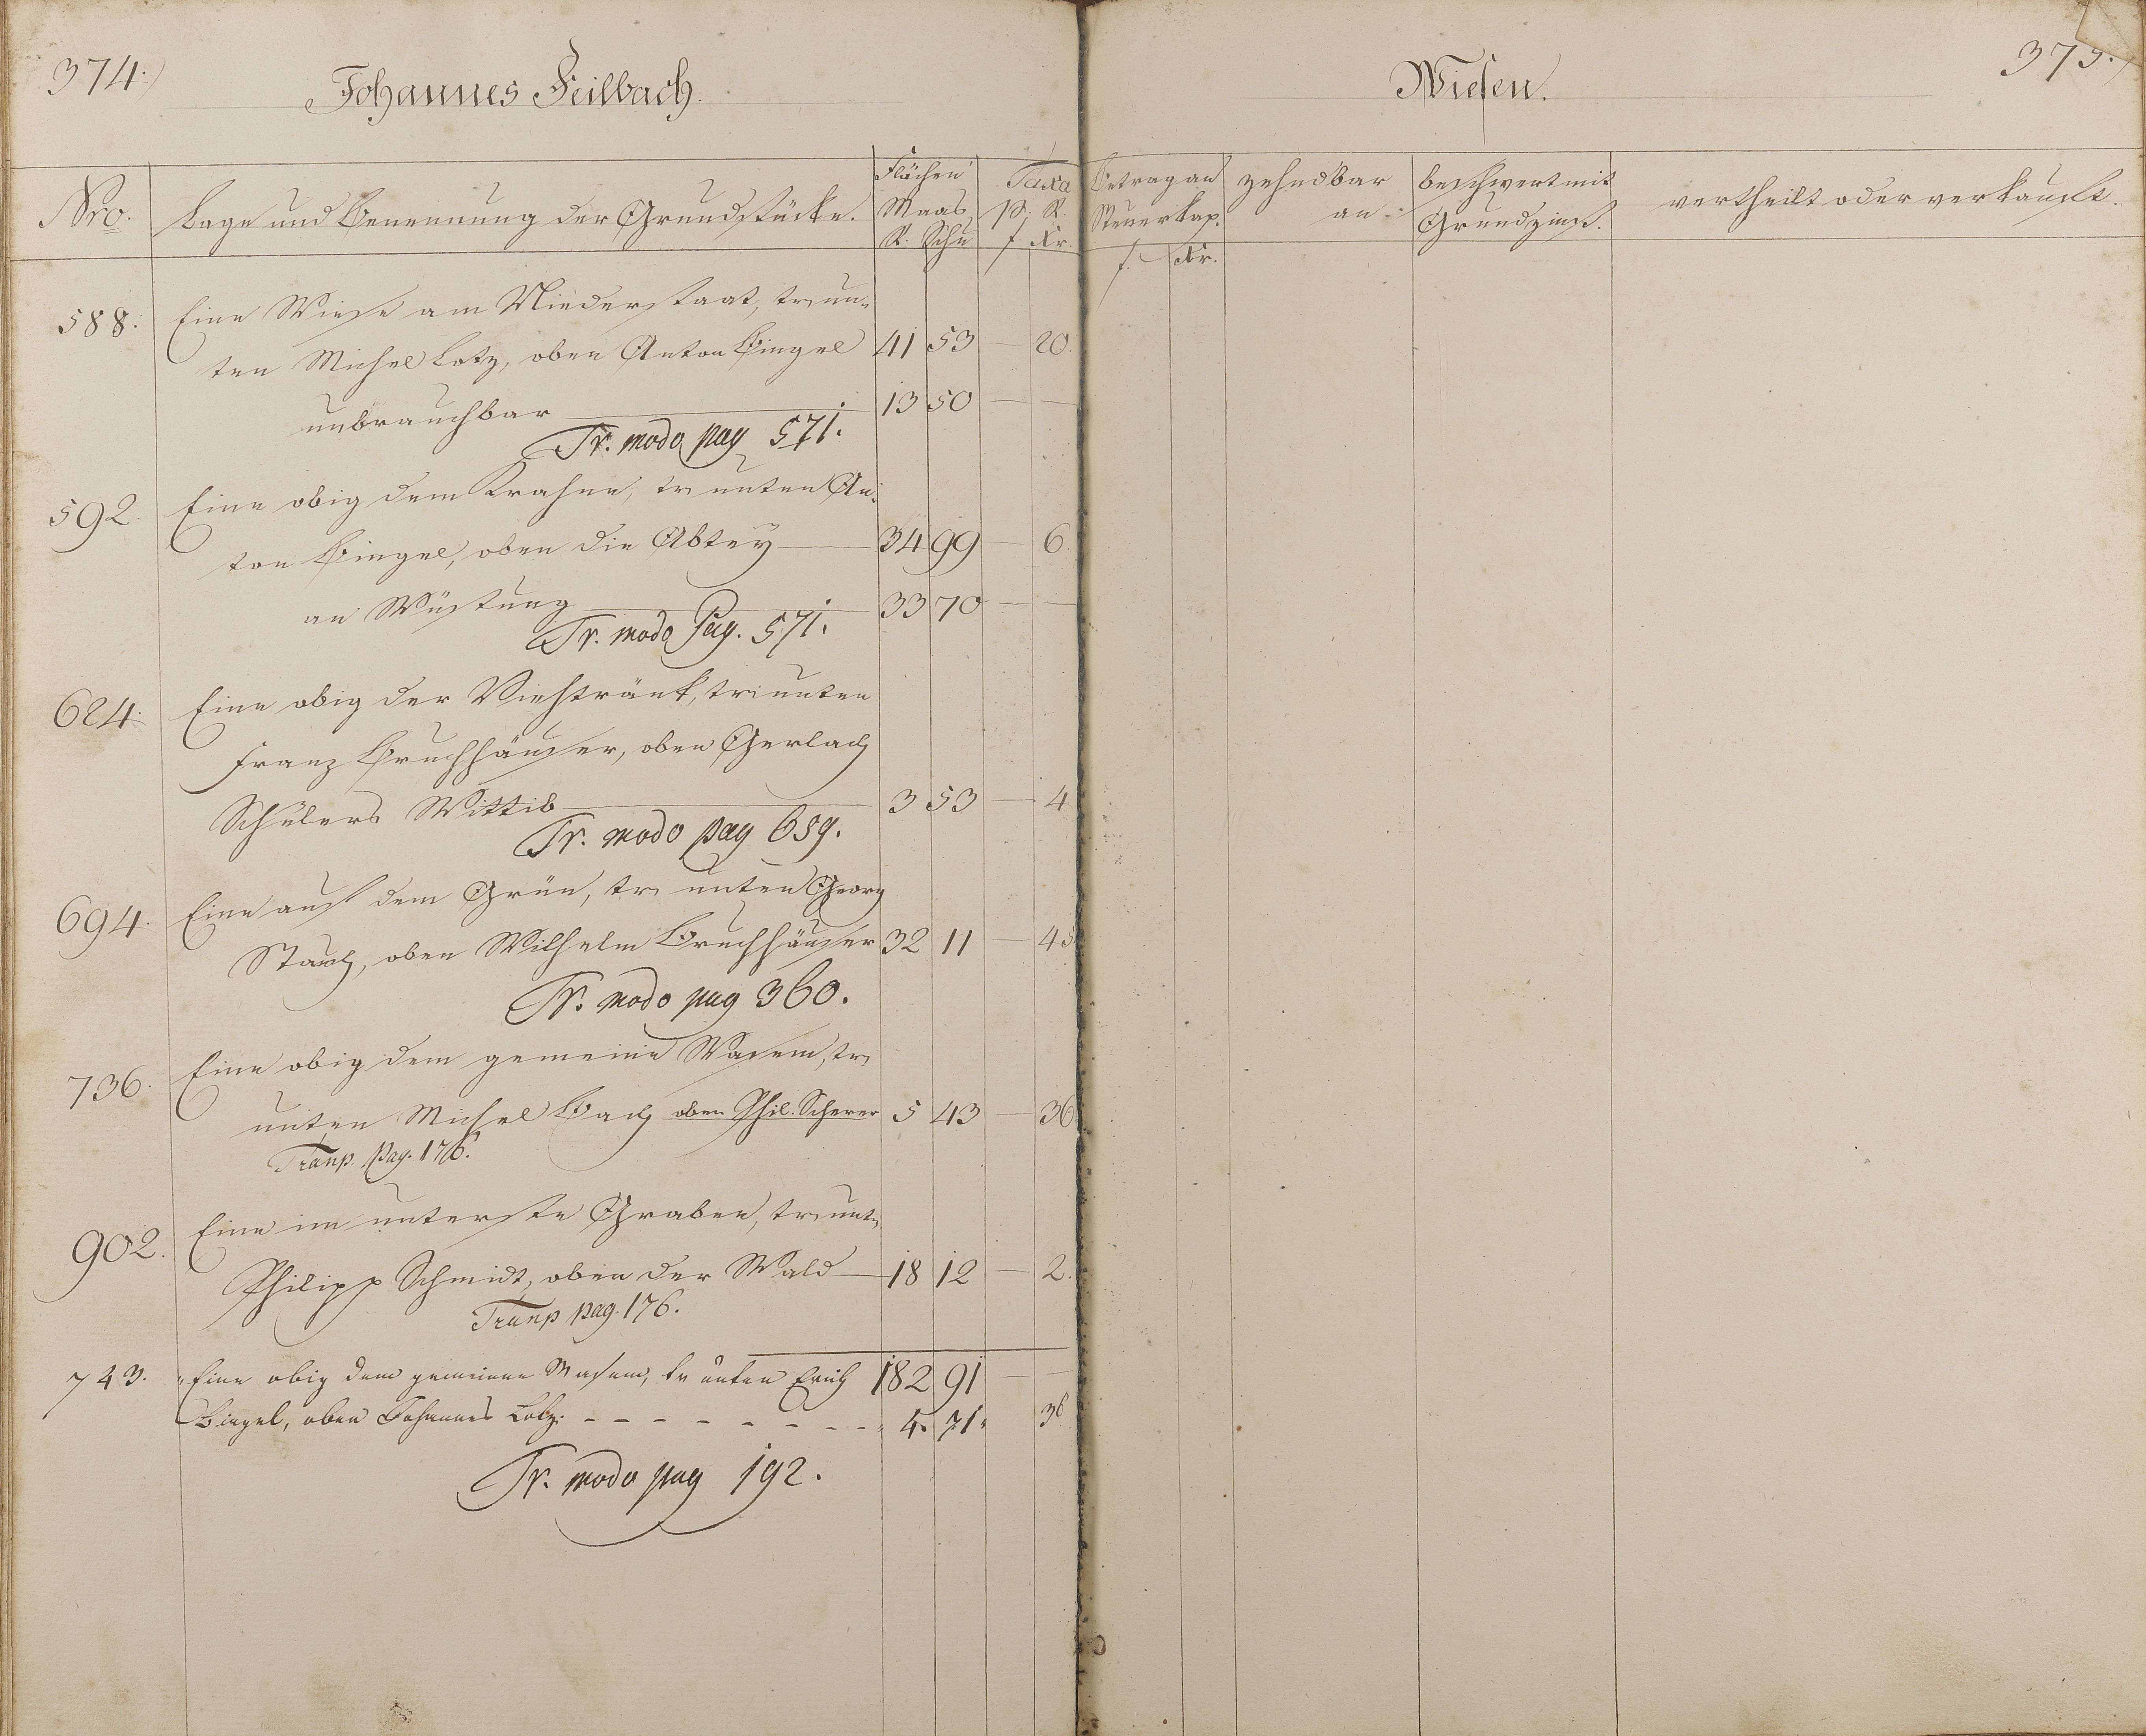 374.)
Johannes Feilbach.
Wiesen.
375.)
Nro.
Lage und Benennung der Grundstücke.
Flächen
Maas
R. Schu
Taxa
p. R.
f. Xr.
Betrag an
Steuerkap.
f. Xr.
zehndbar
an
beschwert mit
Grundzins.
vertheilt oder verkauft.
588. Eine Wiese am Niederstaat, tr. un-
ten Michel Lotz, oben Anton Bingel 41 53 — 20.
unbrauchbar — 13 50 — —
Tr. modo pag 571.
592. Eine obig dem Krahne, tr. unten An-
ton Bingel, oben die Abtey — 34 99 — 6.
an Wüstung — 33 70 — —
Tr. modo Pag. 571.
624. Eine obig der Viehtränk, tr. unten
Franz Bruchhäuser, oben Gerlach
Schülers Wittib — 3 53 — 4
Tr. modo pag 659.
694. Eine auf dem Grün, tr. unten Georg
Stauch, oben Wilhelm Bruchhäuser 32 11 — 45
Tr. modo pag 360.
736. Eine obig dem gemeine Wasem, tr.
unten Michel Bach oben Phil. Scherer 5 43 — 36
Tranp. Pag. 176.
902. Eine im unterste Graben, tr. unten
Philipp Schmidt, oben der Wald — 18 12 — 2.
Tranp pag. 176.
182 91 — —
743. Eine obig dem gemeinen Wasem, tr unten Erich
Bingel, oben Johannes Lotz. - - - - - - - - 4. 71. 36
Tr. modo pag 192.